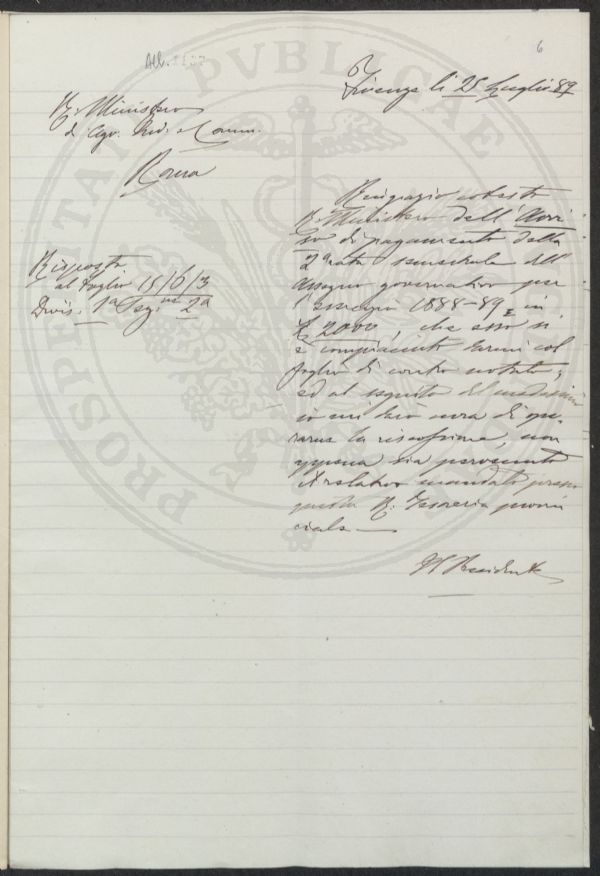 6
Firenze li 25 Luglio 89
R. Ministero
di Agr. Ind. e Comm.
Roma
Ringrazio cotesto
R. Ministero dell' Avvi
so di pagamento della
2ª rata semestrale dell'
Assegno governativo per
l'esercizio 1888-89, in
£ 2000, che esso si
è compiaciuto darmi col
foglio di contro notato;
ed al seguito del medesimo
io mi farò cura di ope
rarne la riscossione, non
appena sia pervenuto
il relativo mandato presso
questa R. Tesoreria provin
ciale
Il Presidente
Risposta
al foglio 15/6/3
Divis. 1ª Sez. 2ª
PROSPERITATI PVBLICAE